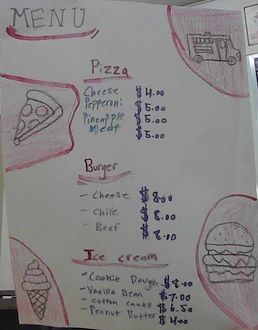 MENU
Pizza
Cheese $4.00
Pepperoni $5.00
Pineapple $5.00
Meat $5.00
Burger
- Cheese $8.00
- Chile $8.00
- Beef $8.00
Ice cream
- Cookie Dough $8.00
- Vanilla Bean $7.00
- cotton candy $6.50
- Peanut Butter $4.00